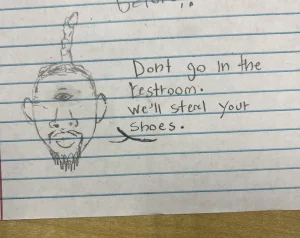 Before,.
Dont go in the
restroom.
we'll steal your
shoes.